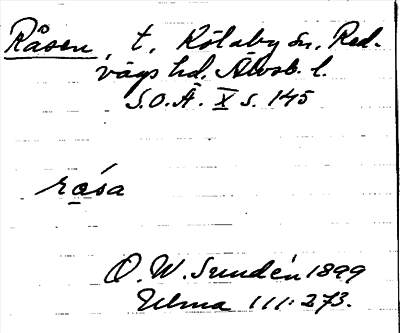 Råsen, t, Kölaby sn, Red-
vägs hd, Älvsb. l.
S.O.Ä. X s. 145
råsa
O. W. Sundén 1899
Ulma 111:273.